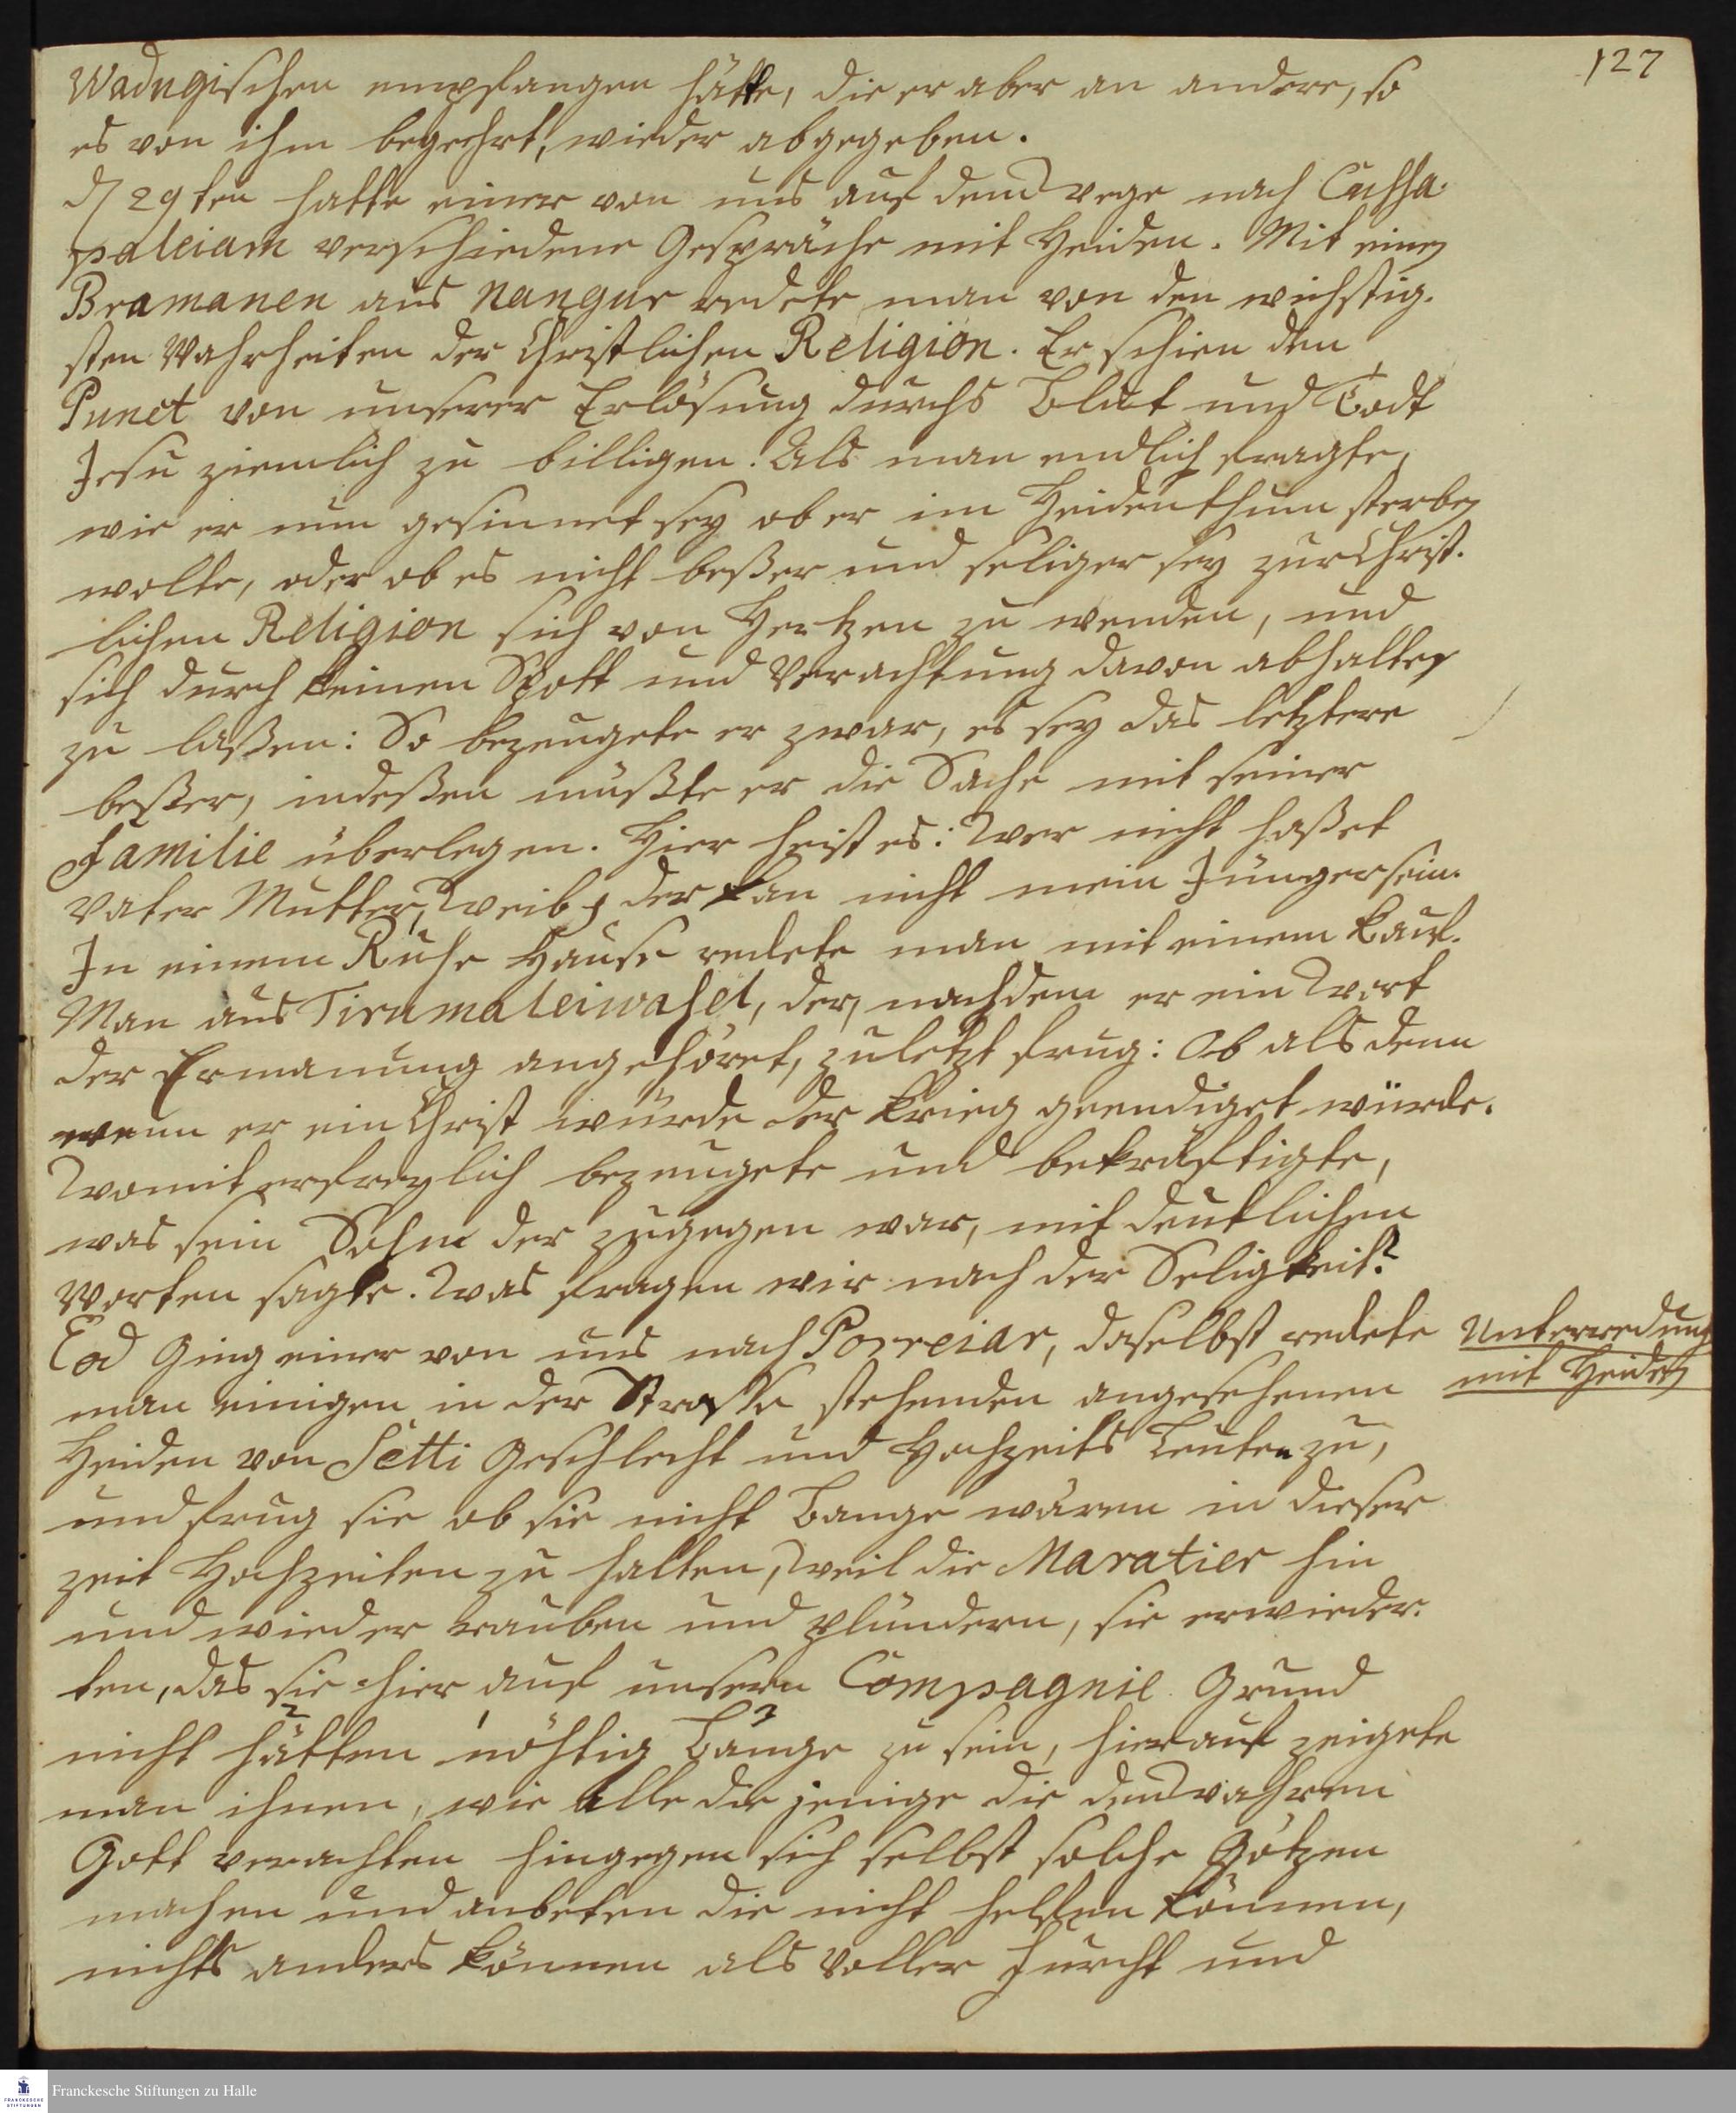 127
Wadugischen empfangen hätte, die er aber an andere, so
es von ihm begehrt, wieder abgegeben.
d 29ten hatte einer von uns auf dem wege nach Cuhsa-
paleiam verschiedene Gespräche mit Heiden. Mit einen
Bramanen aus Nangur redete man von den wichtig-
sten Wahrheiten der Christlichen Religion. Er schien den
Punct von unserer Erlösung durchs Blut und Todt
Jesu ziemlich zu billigen. Als man endlich fragte,
wie er nun gesinnet sey ob er im Heidenthum sterben
wolte, oder ob es nicht beßer und seliger sey zur Christ-
lichen Religion sich von Hertzen zu wenden, und
sich durch keinen Spott und Verachtung davon abhalten
zu laßen: So bezeugete er zwar, es sey das letztere
beßer, indeßen müßte er die Sache mit seiner
Familie überlegen. Hier heist es: Wer nicht haßet
Vater Mutter, Weib der kan nicht mein Jünger sein.
In einem Ruhe Hause redete man mit einem Kauf-
Man aus Tirumaleiwasel, der, nachdem er ein Wort
der Ermanung angehöret, zuletzt frug: Ob als denn
wenn er ein Christ würde der Krieg geendiget würde.
Womit er freylich bezeugete und bekräftigte,
was sein Sohn der zugegen war, mit deutlichen
Worten sagte. Was fragen wir nach der Seligkeit?
Eod Ging einer von uns nach Porreiar, daselbst redete
Unterredung
mit Heiden
man einigen in der Strasse stehenden angesehenen
Heiden von Setti Geschlecht und Hochzeits Leuten zu,
und frug sie ob sie nicht Bange wären in dieser
zeit Hochzeiten zu halten, Weil die Maratier hin
und wieder rauben und plündern, sie erwieder-
ten, das sie hier auf unsern Compagnie Grund
nicht hätten nöhtig Bange zu sein, hierauf zeigete
man ihnen, wie alle die jenige die den wahren
Gott verachten hingegen sich selbst solche Götzen
machen und anbeten die nicht helfen können,
nichts anders können als voller Furcht und
Franckesche Stiftungen zu Halle
FRANCKESCHE
STIFTUNGEN